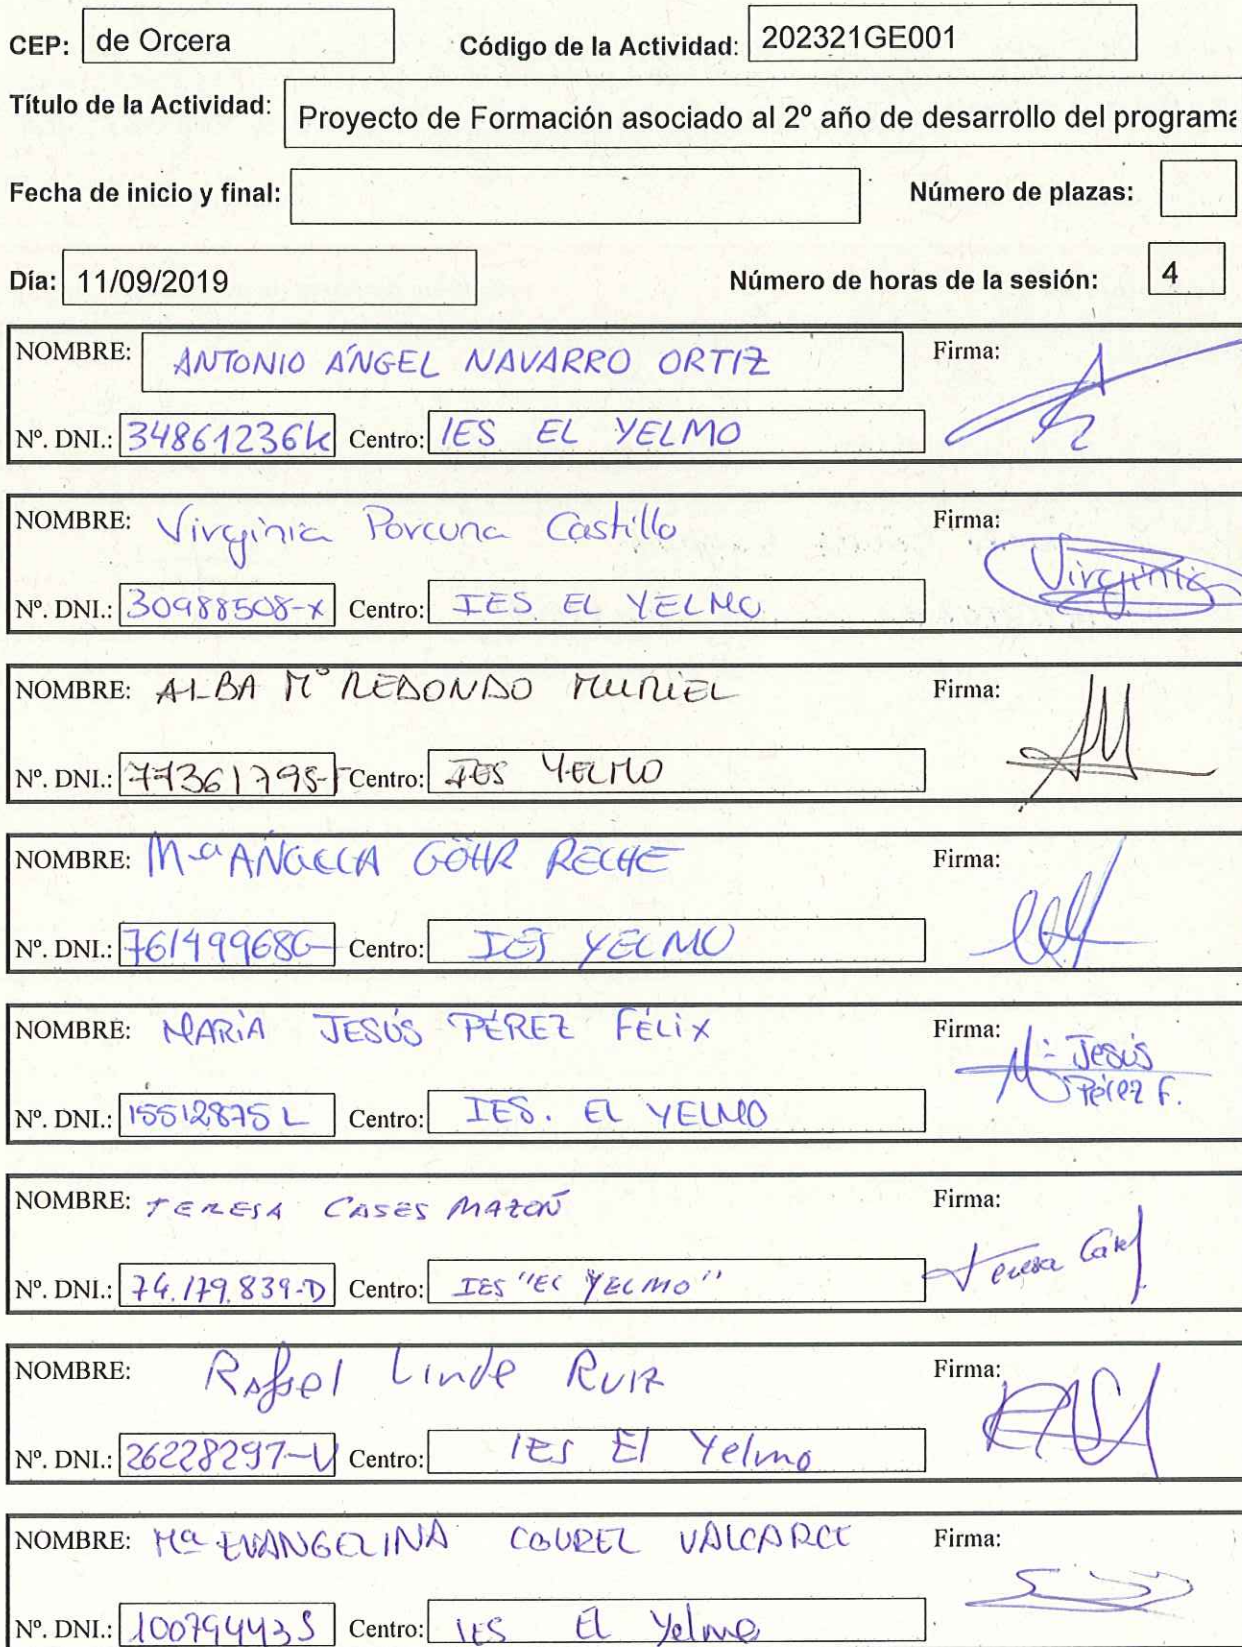 CEP: de Orcera Código de la Actividad: 202321GE001
Título de la Actividad: Proyecto de Formación asociado al 2º año de desarrollo del programa
Fecha de inicio y final: Número de plazas:
Día: 11/09/2019 Número de horas de la sesión: 4
NOMBRE: ANTONIO ÁNGEL NAVARRO ORTIZ Firma:
Nº. DNI.: 34861236K Centro: IES EL YELMO
NOMBRE: Virginia Porcuna Castillo Firma:
Virginia
Nº. DNI.: 30988508-X Centro: IES EL YELMO
NOMBRE: ALBA Mª REDONDO MURIEL Firma:
Nº. DNI.: Centro: IES YELMO
NOMBRE: Mª ANGELA GÖHR RECHE Firma:
Nº. DNI.: 76149968G Centro: IES YELMO
NOMBRE: MARÍA JESÚS PÉREZ FÉLIX Firma:
Mª Jesús
Pérez F.
Nº. DNI.: 15512875L Centro: IES. EL YELMO
NOMBRE: TERESA CASES MAZÓN Firma:
Teresa Cases
Nº. DNI.: 74.179.839-D Centro: IES "EL YELMO"
NOMBRE: Rafael Linde Ruiz Firma:
Nº. DNI.: 26228297-V Centro: IES El Yelmo
NOMBRE: Mª EVANGELINA COUREL VALCARCE Firma:
Nº. DNI.: 10079443S Centro: IES El Yelmo